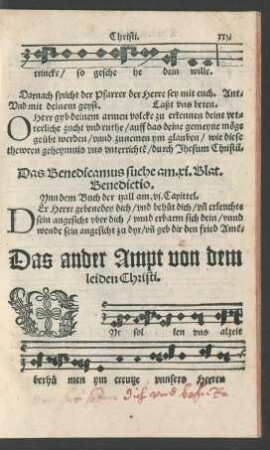 Christi.
trincke/ so gesche he dem wille.
Darnach spricht der Pfarrer der Herre sey mit euch. Ant.
Vnd mit deinem geyst. Last vns beten.
O Herr gyb deinem armen volcke zu erkennen deine vet-
terliche zucht vnd ruthe/ auff das deine gemeyne möge
geübt werden/ vnnd zunemen ym glauben/ wie diese
thewren geheymnis vns vnterricht/ durch Jhesum Christū.
Das Benedicamus suche am.xi. Blat.
Benedictio.
Ynn dem Buch der tzall am.vi. Capittel.
Der Herr gebenedey dich/ vnd behüt dich/ vn̄ erleuchte
sein angesicht vber dich/ vnnd erbarm sich dein/ vnnd
wende sein angesicht zu dyr/ vn̄ geb dir den fried Amē/
Das ander Ampt von dem
leiden Christi.
Yr sol len vns alzeit
berhü men ym creutze vnsers Herren
dich vnd